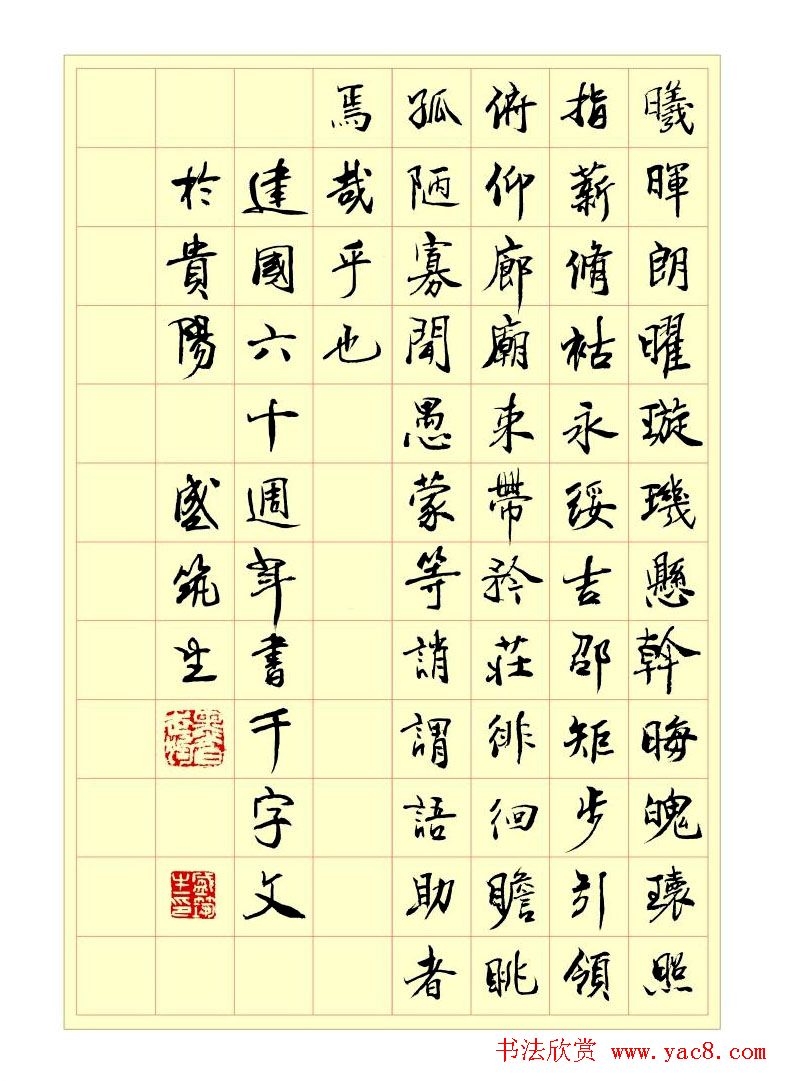 曦暉朗曜璇璣懸斡晦魄環照
指薪脩祜永綏吉邵矩步引領
俯仰廊廟束帶矜莊徘徊瞻眺
孤陋寡聞愚蒙等誚謂語助者
焉哉乎也
建國六十週年書千字文
於貴陽 盛筑生
盛筑生印
书法欣赏 www.yac8.com